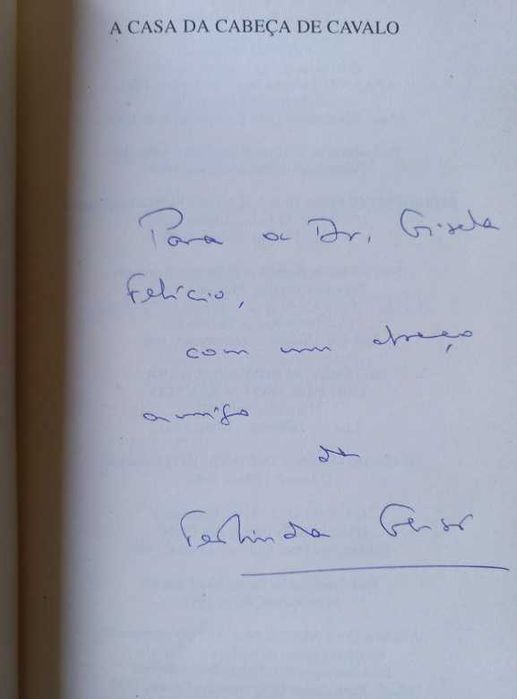 A CASA DA CABEÇA DE CAVALO
Para a Dr. Gisela
Felício,
com um abraço
amigo
de
Teolinda Gersão